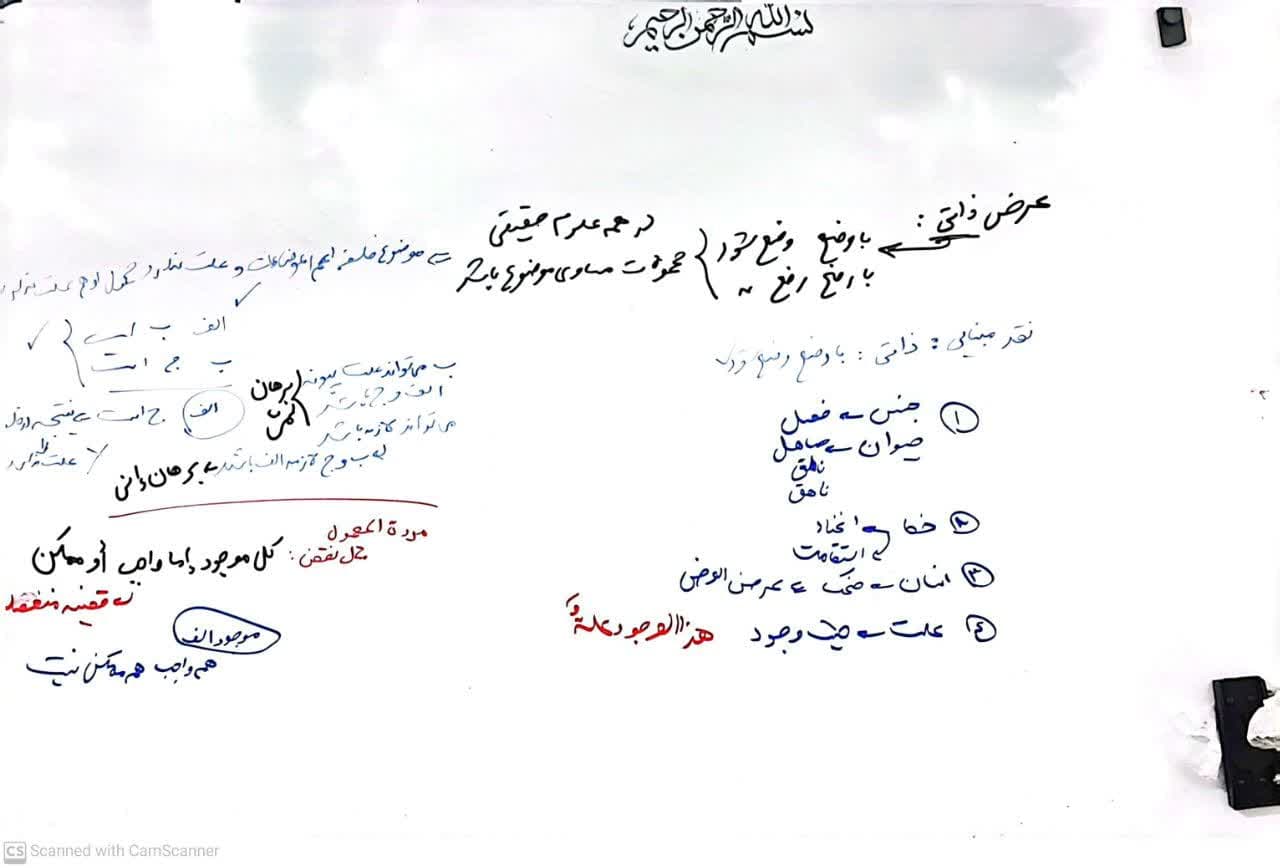 بسم الله الرحمن الرحیم
عرض ذاتی :
با وضع وضع شود
با رفع رفع "
در همه علوم حقیقی
محمولات مساوی موضوع باشد
موضوع فلسفه اعم موضوعات و علت ندارد
الف ب است
ب ج است
الف ج است نتیجه
ب می‌تواند علت
الف و ج باشد
برهان
لمی
می‌تواند لازمه باشد
ب و ج لازمه الف باشد برهان إنی
علت ندارد
نقد مبنایی : ذاتی : با وضع وضع شود
① جنس فصل
حیوان صاهل
ناطق
ناهق
② خط انحناء
استقامت
③ انسان ضحک عرض
④ علت وجود هذا الوجود علة
مرددة المحمول
حل نقض : کل موجود إما واجب أو ممکن
قضیه منفصله
موجود الف
هم واجب هم ممکن نیست
CS Scanned with CamScanner